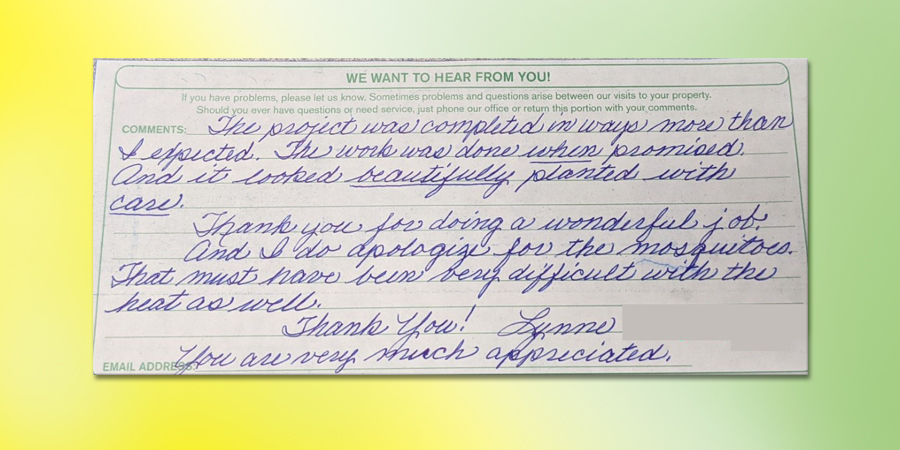 WE WANT TO HEAR FROM YOU!
If you have problems, please let us know. Sometimes problems and questions arise between our visits to your property.
Should you ever have questions or need service, just phone our office or return this portion with your comments.
COMMENTS: The project was completed in ways more than
I expected. The work was done when promised.
And it looked beautifully planted with
care.
Thank you for doing a wonderful job.
And I do apologize for the mosquitoes.
That must have been very difficult with the
heat as well.
Thank You! Lynne
You are very much appreciated.
EMAIL ADDRESS: